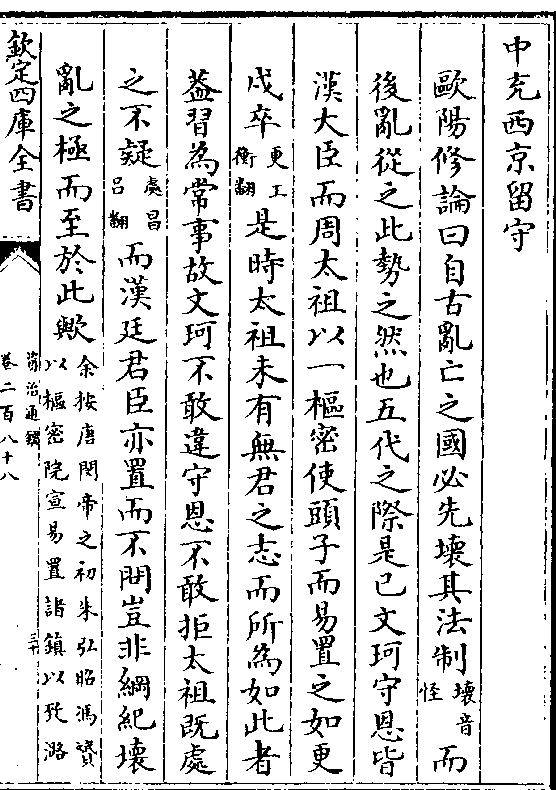 中充西京留守
歐陽修論曰自古亂亡之國必先壞其法制壞音怪而
後亂從之此勢之然也五代之際是已文珂守恩皆
漢大臣而周太祖以一樞密使頭子而易置之如更
戍卒更工衡翻是時太祖未有無君之志而所為如此者
葢習為常事故文珂不敢違守恩不敢拒太祖既處
之不疑處昌吕翻而漢廷君臣亦置而不問豈非綱紀壞
亂之極而至於此歟余按唐閔帝之初朱弘昭馮贇以樞密院宣易置諸鎮以致潞
欽定四庫全書
資治通鑑
卷二百八十八
三十